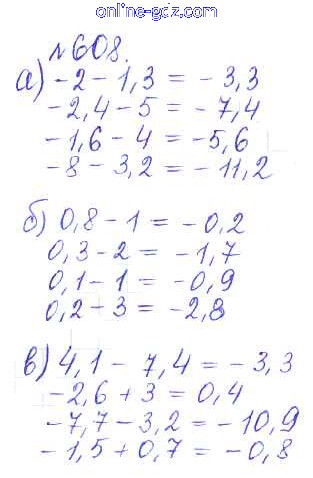 online-gdz.com
№608.
а) -2 - 1,3 = -3,3
-2,4 - 5 = -7,4
-1,6 - 4 = -5,6
-8 - 3,2 = -11,2
б) 0,8 - 1 = -0,2
0,3 - 2 = -1,7
0,1 - 1 = -0,9
0,2 - 3 = -2,8
в) 4,1 - 7,4 = -3,3
-2,6 + 3 = 0,4
-7,7 - 3,2 = -10,9
-1,5 + 0,7 = -0,8